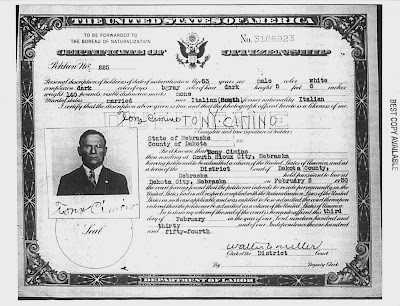 THE UNITED STATES OF AMERICA
TO BE FORWARDED TO
THE BUREAU OF NATURALIZATION
No. 3166923
CERTIFICATE OF CITIZENSHIP
Petition No. 225
Personal description of holder as of date of naturalization: Age 53 years; sex Male; color white
complexion dark; color of eyes hair dark; height 5 feet 6 inches
weight 140 pounds; visible distinctive marks none
Marital status married race Italian (South) former nationality Italian
I certify that the description above given is true, and that the photograph affixed hereto is a likeness of me.
Tony Cimino TONY CIMINO
(Complete and true signature of holder)
State of Nebraska
County of Dakota
Be it known, that Tony Cimino
then residing at South Sioux City, Nebraska
having petitioned to be admitted a citizen of the United States of America, and at
a term of the District Court of Dakota County,
Nebraska held pursuant to law at
Dakota City, Nebraska on February 3 1930
the court having found that the petitioner intends to reside permanently in the
United States, had in all respects complied with the Naturalization Laws of the United
States in such case applicable, and was entitled to be so admitted, the court thereupon
ordered that the petitioner be admitted as a citizen of the United States of America.
In testimony whereof the seal of the court is hereunto affixed this third
day of February in the year of our Lord nineteen hundred and
thirty and of our Independence the one hundred
and fifty-fourth
Tony Cimino
Seal
Walter E Miller
Clerk of the District Court.
By Deputy Clerk.
DEPARTMENT OF LABOR
BEST COPY AVAILABLE